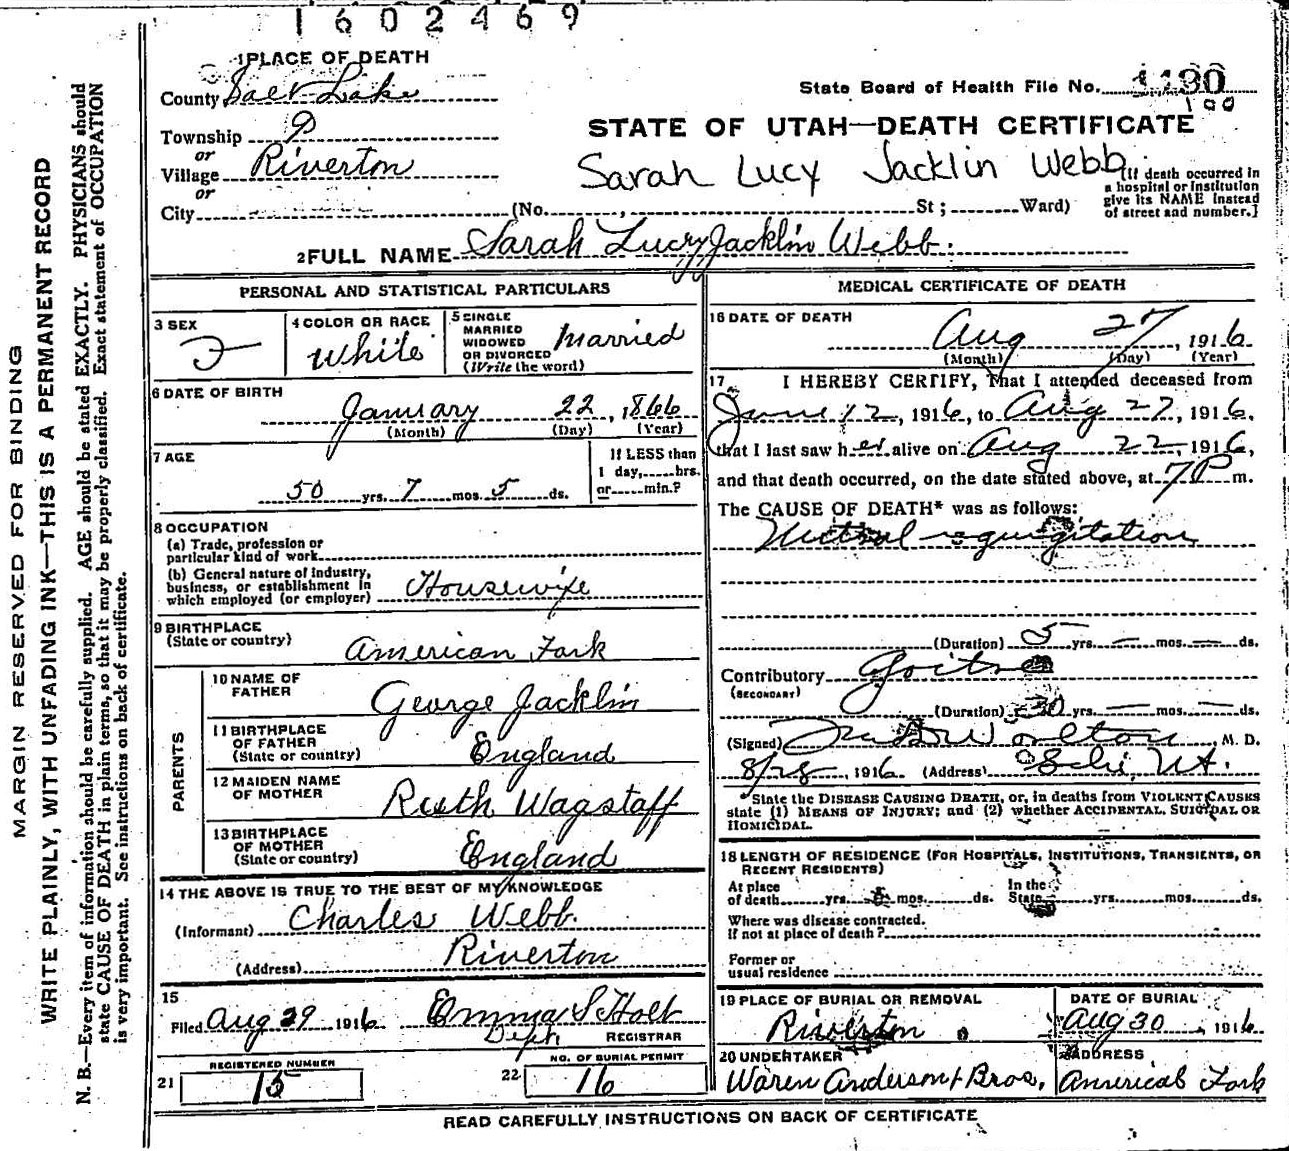 1602469
1 PLACE OF DEATH
County Salt Lake
State Board of Health File No. 1190
100
Township 9
or
Village Riverton
or
City
STATE OF UTAH—DEATH CERTIFICATE
Sarah Lucy Jacklin Webb
(No. , St ; Ward)
[If death occurred in
a hospital or institution
give its NAME instead
of street and number.]
2 FULL NAME Sarah Lucy Jacklin Webb.
PERSONAL AND STATISTICAL PARTICULARS
3 SEX
F
4 COLOR OR RACE
White
5 SINGLE
MARRIED
WIDOWED
OR DIVORCED
(Write the word)
Married
6 DATE OF BIRTH
January 22, 1866
(Month) (Day) (Year)
7 AGE
50 yrs. 7 mos. 5 ds.
If LESS than
1 day, hrs.
or min.?
8 OCCUPATION
(a) Trade, profession or
particular kind of work
(b) General nature of industry,
business, or establishment in
which employed (or employer) Housewife
9 BIRTHPLACE
(State or country)
American Fork
PARENTS
10 NAME OF
FATHER
George Jacklin
11 BIRTHPLACE
OF FATHER
(State or country)
England
12 MAIDEN NAME
OF MOTHER
Ruth Wagstaff
13 BIRTHPLACE
OF MOTHER
(State or country)
England
14 THE ABOVE IS TRUE TO THE BEST OF MY KNOWLEDGE
(Informant) Charles Webb.
(Address) Riverton
15
Filed Aug 29 1916 Emma S Holt
Depty. REGISTRAR
REGISTERED NUMBER
21 15
NO. OF BURIAL PERMIT
22 16
MEDICAL CERTIFICATE OF DEATH
16 DATE OF DEATH
Aug 27, 1916
(Month) (Day) (Year)
17 I HEREBY CERTIFY, That I attended deceased from
June 12, 1916, to Aug 27, 1916,
that I last saw her alive on Aug 22, 1916,
and that death occurred, on the date stated above, at 7 P m.
The CAUSE OF DEATH* was as follows:
Mitral regurgitation
(Duration) 5 yrs. — mos. — ds.
Contributory Goitre
(SECONDARY)
(Duration) 30 yrs. — mos. — ds.
(Signed) Worlton, M. D.
8/28, 1916 (Address) Lehi, Ut.
*State the DISEASE CAUSING DEATH, or, in deaths from VIOLENT CAUSES
state (1) MEANS OF INJURY; and (2) whether ACCIDENTAL, SUICIDAL OR
HOMICIDAL.
18 LENGTH OF RESIDENCE (FOR HOSPITALS, INSTITUTIONS, TRANSIENTS, OR
RECENT RESIDENTS)
At place
of death yrs. mos. ds.
In the
State yrs. mos. ds.
Where was disease contracted.
If not at place of death?
Former or
usual residence
19 PLACE OF BURIAL OR REMOVAL
Riverton
DATE OF BURIAL
Aug 30, 1916
20 UNDERTAKER
Waren Anderson & Bros.
ADDRESS
American Fork
READ CAREFULLY INSTRUCTIONS ON BACK OF CERTIFICATE
MARGIN RESERVED FOR BINDING
WRITE PLAINLY, WITH UNFADING INK—THIS IS A PERMANENT RECORD
N. B.—Every item of information should be carefully supplied. AGE should be stated EXACTLY. PHYSICIANS should
state CAUSE OF DEATH in plain terms, so that it may be properly classified. Exact statement of OCCUPATION
is very important. See instructions on back of certificate.